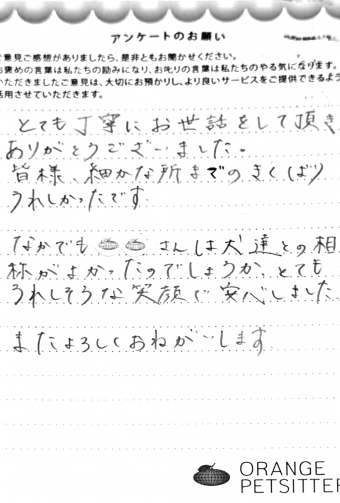 アンケートのお願い
ご意見ご感想がありましたら、是非ともお聞かせください。
お褒めの言葉は私たちの励みになり、お叱りの言葉は私たちのやる気になります。
いただきましたご意見は、大切にお預かりし、より良いサービスをご提供できるよう
活用させていただきます。
とても丁寧にお世話をして頂き
ありがとうございました。
皆様、細かな所までのきくばり
うれしかったです
なかでも さんは犬達との相
称がよかったのでしょうか、とても
うれしそうな笑顔で安心しました
またよろしくおねがいします
ORANGE
PETSITTER